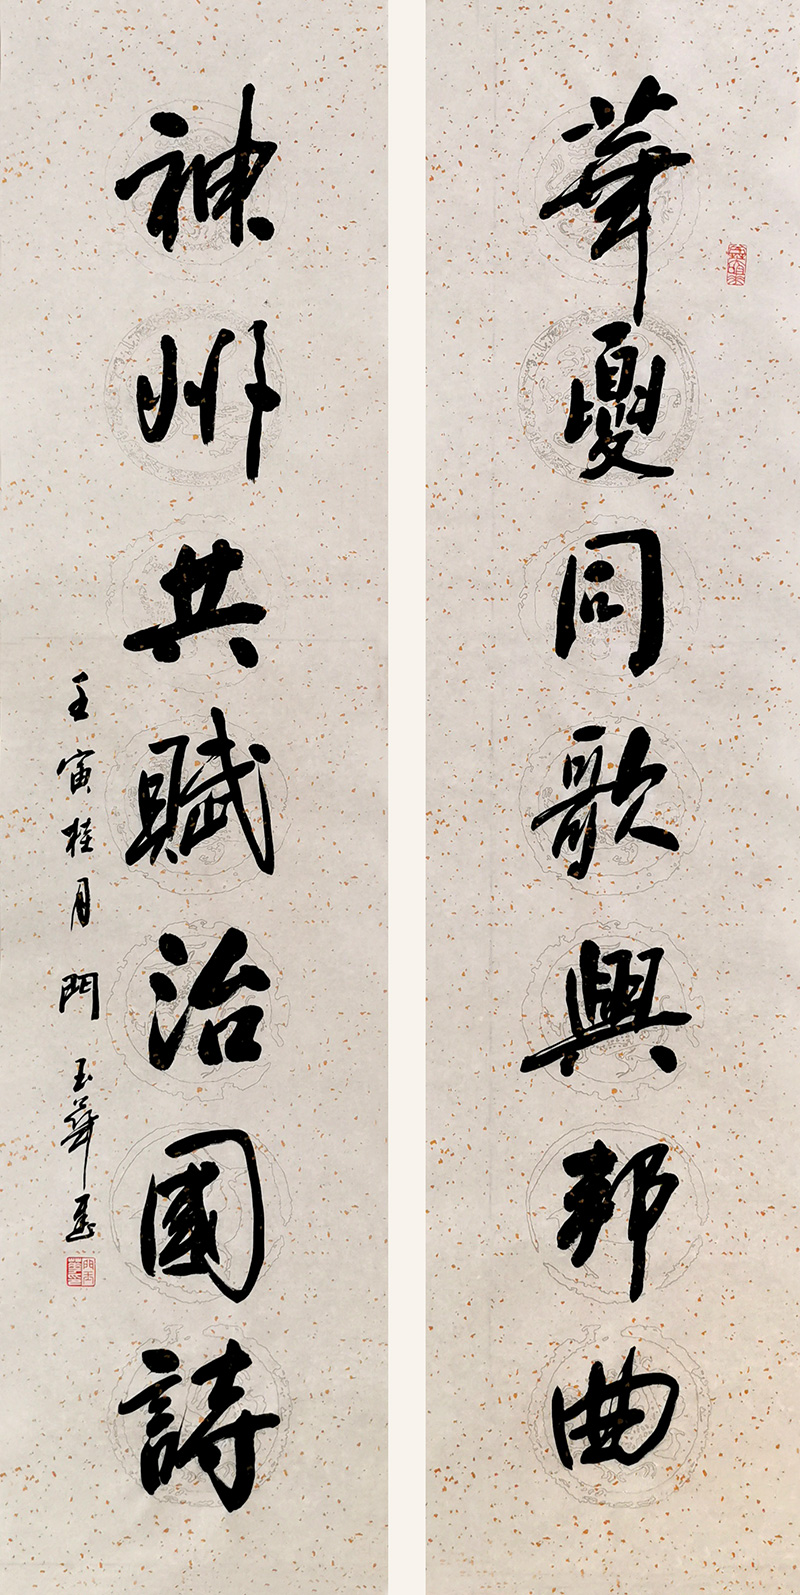 華夏同歌興邦曲
神州共賦治國詩
壬寅桂月門玉華書